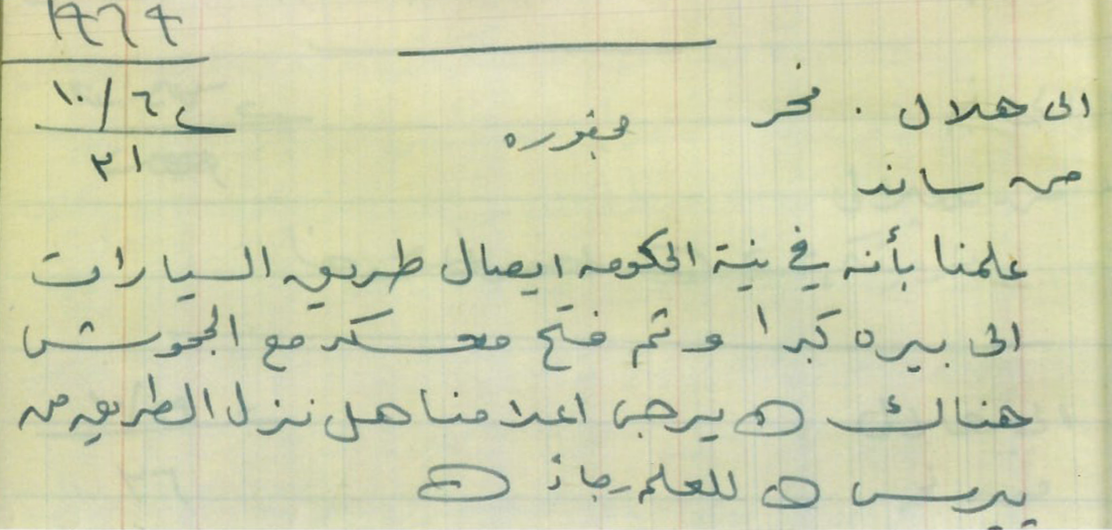 ١٩٦٩
١٠/٦٤
٣١
الى هلال . فخر
محفوره
من ساند
علمنا بأنه في نية الحكومه ايصال طريق السيارات
الى بيره كبرا وتم فتح معسكر مع الجحوش
هناك يرجى اعلامنا هل نزل الطريق من
بيرس للعلم رجاءً